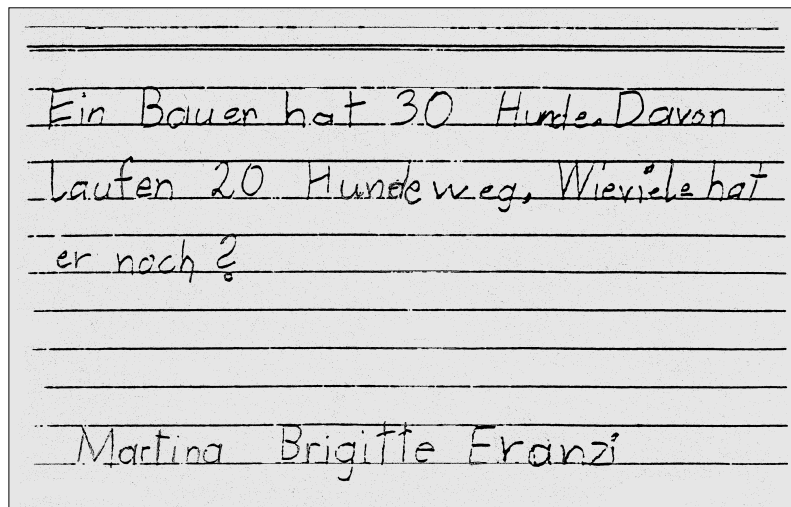 Ein Bauer hat 30 Hunde. Davon
laufen 20 Hunde weg. Wieviele hat
er noch?
Martina Brigitte Franzi